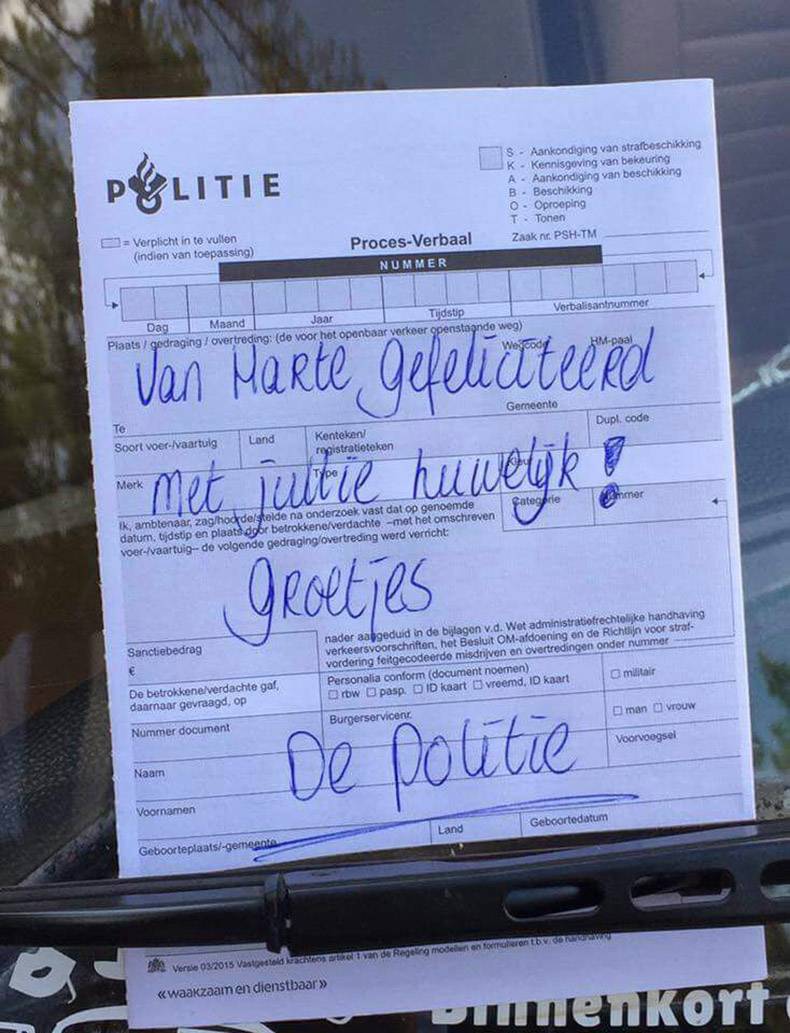 POLITIE
S - Aankondiging van strafbeschikking
K - Kennisgeving van bekeuring
A - Aankondiging van beschikking
B - Beschikking
O - Oproeping
T - Tonen
= Verplicht in te vullen
(indien van toepassing)
Proces-Verbaal
Zaak nr. PSH-TM
NUMMER
Dag Maand Jaar Tijdstip Verbalisantnummer
Plaats / gedraging / overtreding: (de voor het openbaar verkeer openstaande weg)
Wegcode HM-paal
Van Harte gefeliciteerd
Te Gemeente
Soort voer-/vaartuig Land Kenteken/ registratieteken Dupl. code
Merk Type Kleur
met jullie huwelijk!
Categorie Nummer
Ik, ambtenaar, zag/hoorde/stelde na onderzoek vast dat op genoemde
datum, tijdstip en plaats door betrokkene/verdachte –met het omschreven
voer-/vaartuig– de volgende gedraging/overtreding werd verricht:
groetjes
nader aangeduid in de bijlagen v.d. Wet administratiefrechtelijke handhaving
verkeersvoorschriften, het Besluit OM-afdoening en de Richtlijn voor straf-
vordering feitgecodeerde misdrijven en overtredingen onder nummer
Sanctiebedrag
€
De betrokkene/verdachte gaf,
daarnaar gevraagd, op
Personalia conform (document noemen)
rbw pasp. ID kaart vreemd, ID kaart militair
Nummer document Burgerservicenr. man vrouw
De politie
Naam Voorvoegsel
Voornamen
Geboorteplaats/-gemeente Land Geboortedatum
Versie 03/2015 Vastgesteld krachtens artikel 1 van de Regeling modellen en formulieren t.b.v. de handhaving
«waakzaam en dienstbaar»
Binnenkort